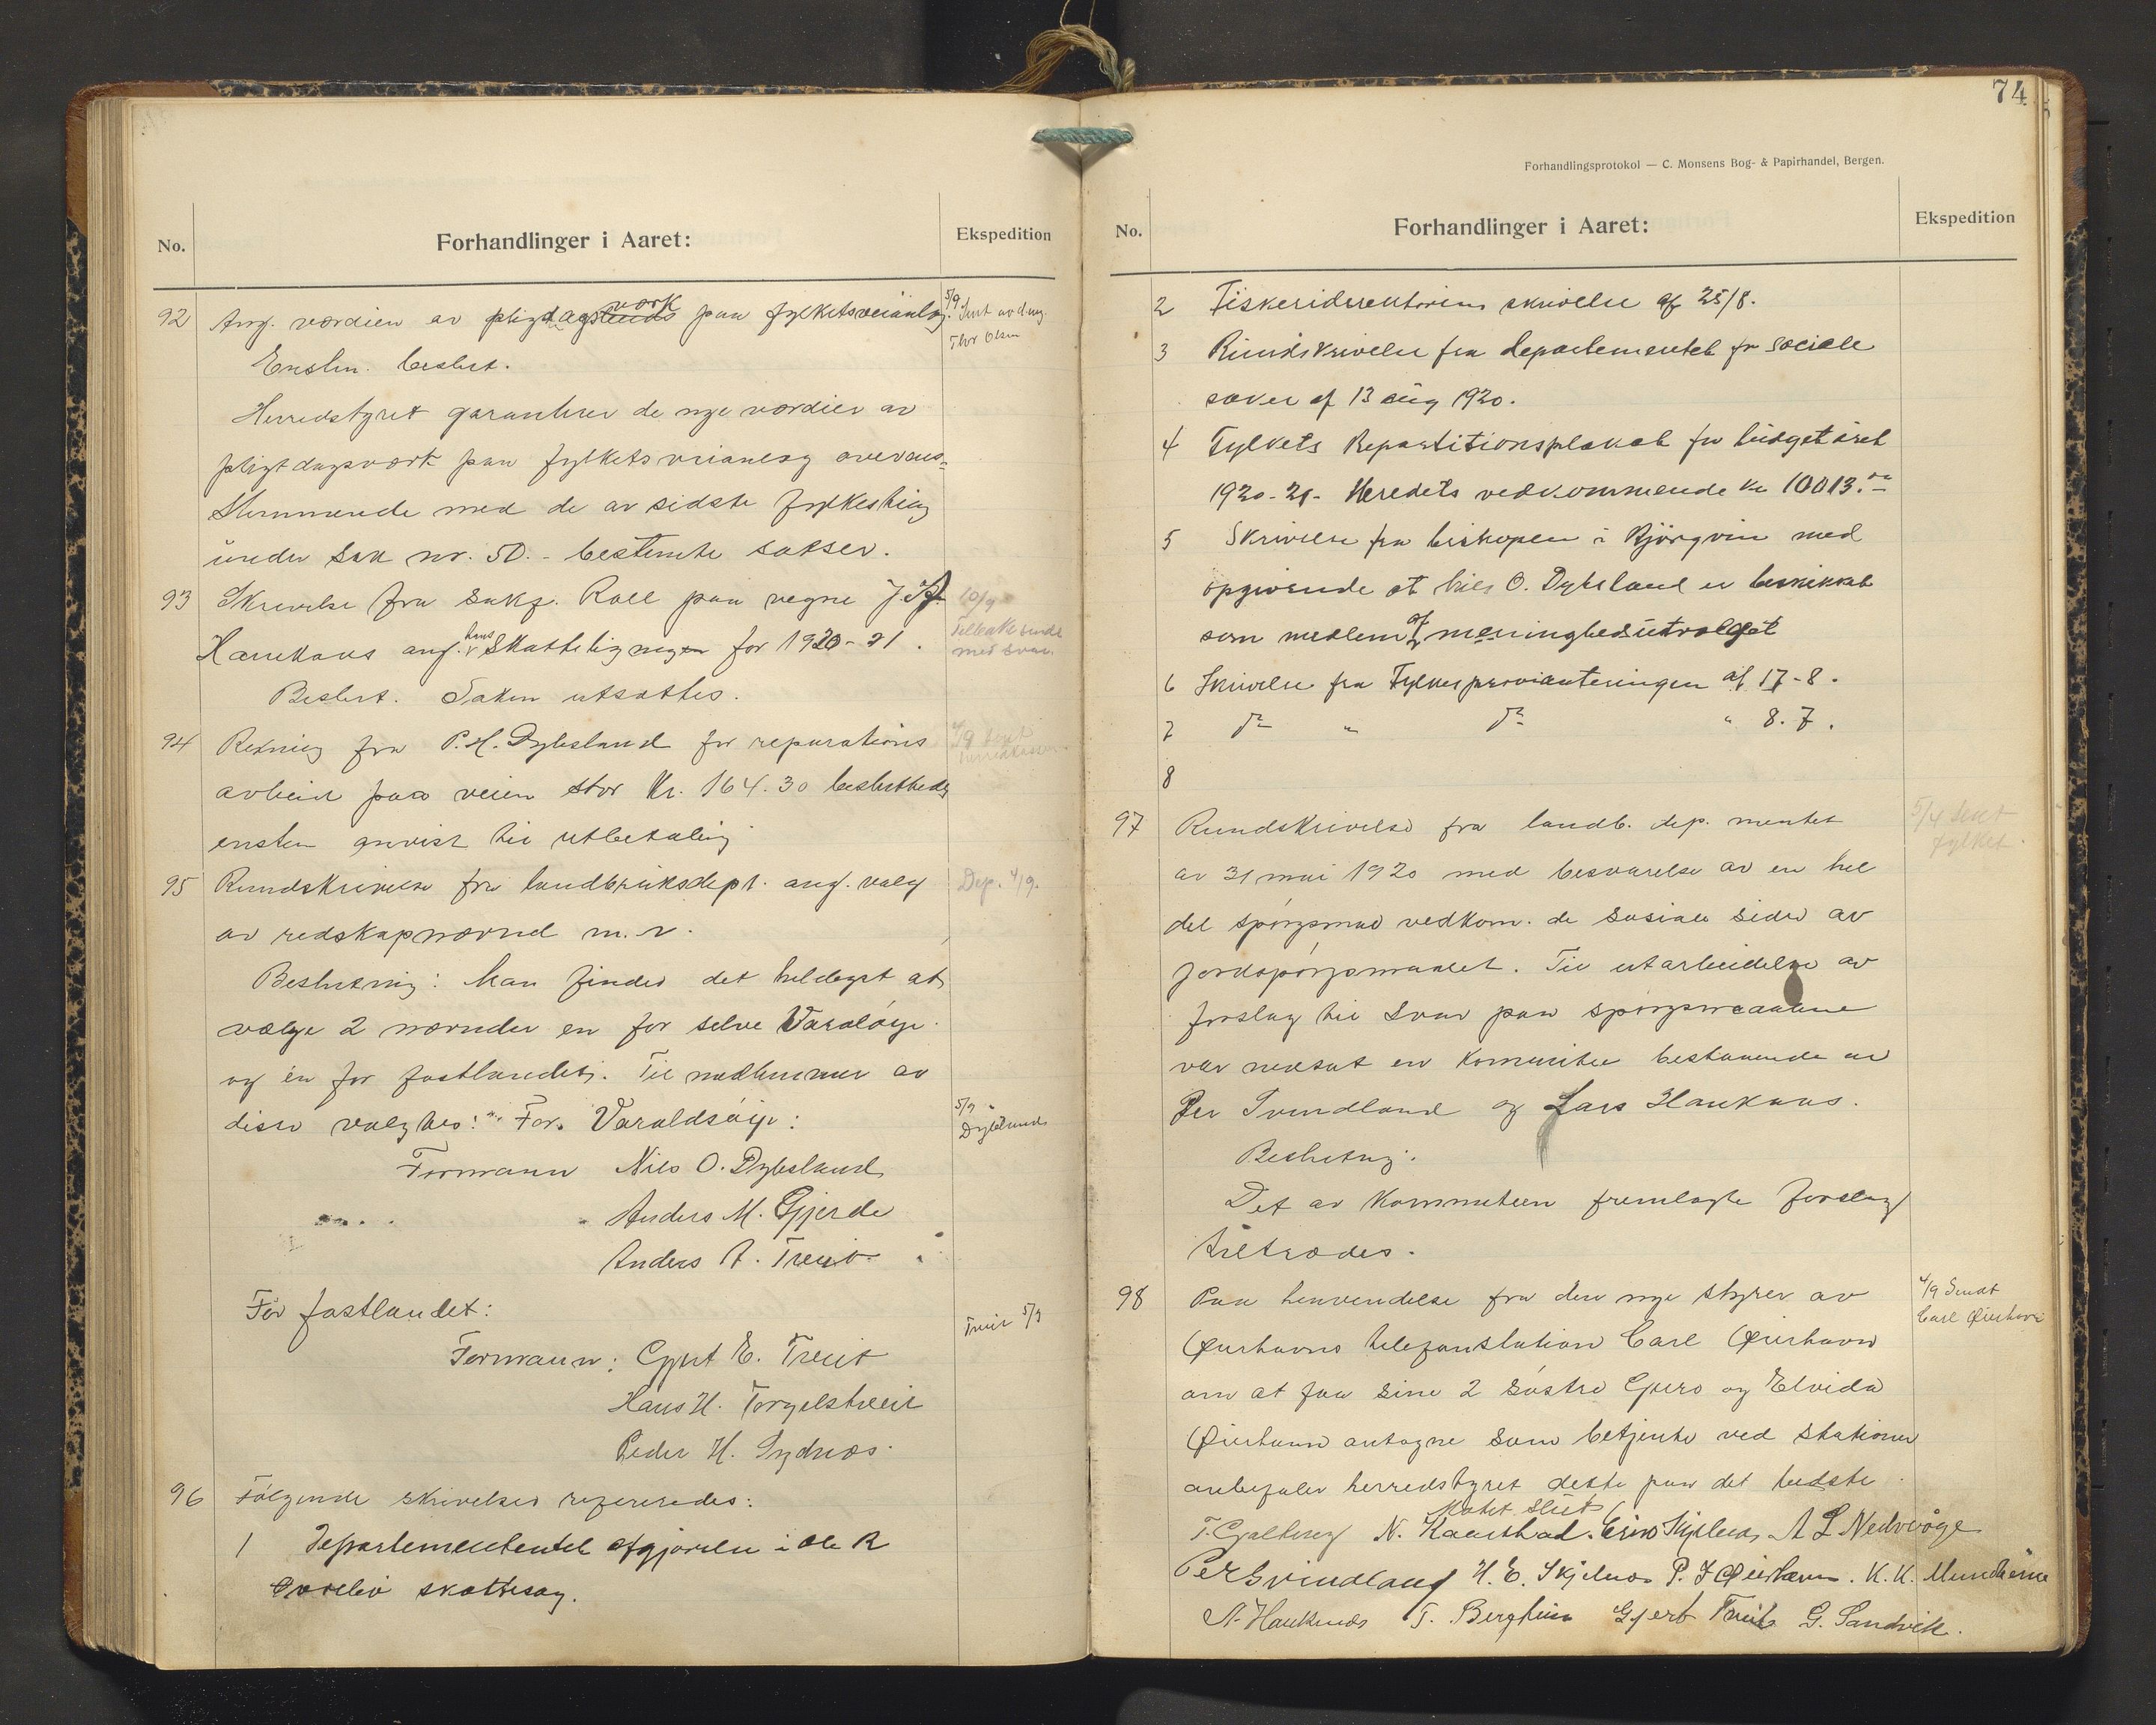 No.
Forhandlinger i Aaret:
Ekspedition
92 Ang. værdien av pligtdagsværk paa fylketsveianlæg. 5/9 Sent avdng.
Thor Olsen
Enstm. beslut.
Herredstyret garanterer de nye værdier av
pligtdagsværk paa fylketsveianlæg overens-
stemmende med de av sidste fylkesting
under sak nr. 50.- bestemte satser.
93 Skrivelse fra Sakf. Roll paa vegne J. 10/9
Haukaas ang. hans Skatteligningen for 1920-21. Tilbakesendt
med svar.
Beslut. Saken utsattes.
94 Rekning fra P.H. Dybsland for reparations
arbeid paa veien stor Kr. 164.30 besluttedes
enstem anvist til utbetaling
95 Rundskrivelse fra landbruksdept. ang. valg Dep. 4/9.
av redskapnævnd m. v.
Beslutning: Man finder det heldigst at
vælge 2 nævnder en for selve Varaldsøy
og en for fastlandet. Til medlemmer av
disse valgtes: For Varaldsøy: 5/9
Dybsland
Formann Nils O. Dybsland
Anders M. Gjerde
Anders A. Treit
For fastlandet:
Treit 5/9
Formann: Gjert E. Treit
Hans H. Torgelstveit
Peder H. Sydnes.
96 Følgende skrivelser refereredes:
1 Departemententet afgjørelse i Ole R
skattesag.
74
Forhandlingsprotokol — C. Monsens Bog- & Papirhandel, Bergen.
No.
Forhandlinger i Aaret:
Ekspedition
2 Fiskeridirektørens skrivelse af 25/8.
3 Rundskrivelse fra departementet for sociale
saker af 13 aug 1920.
4 Fylkets Repartitionsplakat for budgetåret
1920-21- Heredets vedkommende kr 10013.
5 Skrivelse fra biskopen i Bjørgvin med
opgivende at Nils O. Dybsland er beskikket
som medlem af meninghedsutvalget
6 Skrivelse fra Fylkesprovianteringen af 17-8.
7 do " do " 8.7.
8
97 Rundskrivelse fra landb. dep. mentet 5/4 sent
fylket.
av 31 mai 1920 med besvarelse av en hel
del spørgsmaal vedkom. de sosiale sider av
jordspørgsmaalet. Til utarbeidelse av
forslag til svar paa spørgsmaalene
var nedsat en komite bestaaende av
Per Svindland og Lars Haukaas.
Beslutng.
Det av Kommiteen fremlagte forslag
tiltrædes.
98 Paa henvendelse fra den nye styrer av 4/9 Sendt
Carl Øierhavn
Øierhavns telefonstation Carl Øierhavn
om at faa sine 2 søstre og Elvida
Øierhavn antagne som betjente ved stationen
anbefaler herredstyret dette paa det bedste.
Møtet slut
T. Gjalberg N. Kaarstad. Eirik Skjelnes A L Nedrevåge
Per Svindland H. E. Skjelnes P. J Øierhavn. K. K. Mundheim
A. Haukaas T. Bergheim Gjert Treit G. Sandvik.